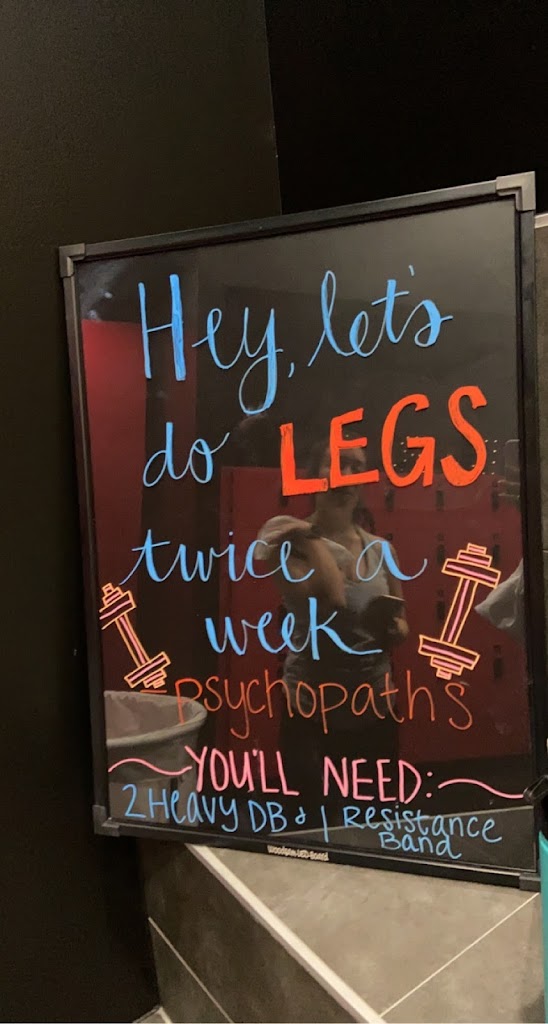 Hey, let's
do LEGS
twice a
week
-psychopaths
YOU'LL NEED:
2 Heavy DB & 1 Resistance
Band
Woodsam LED Board